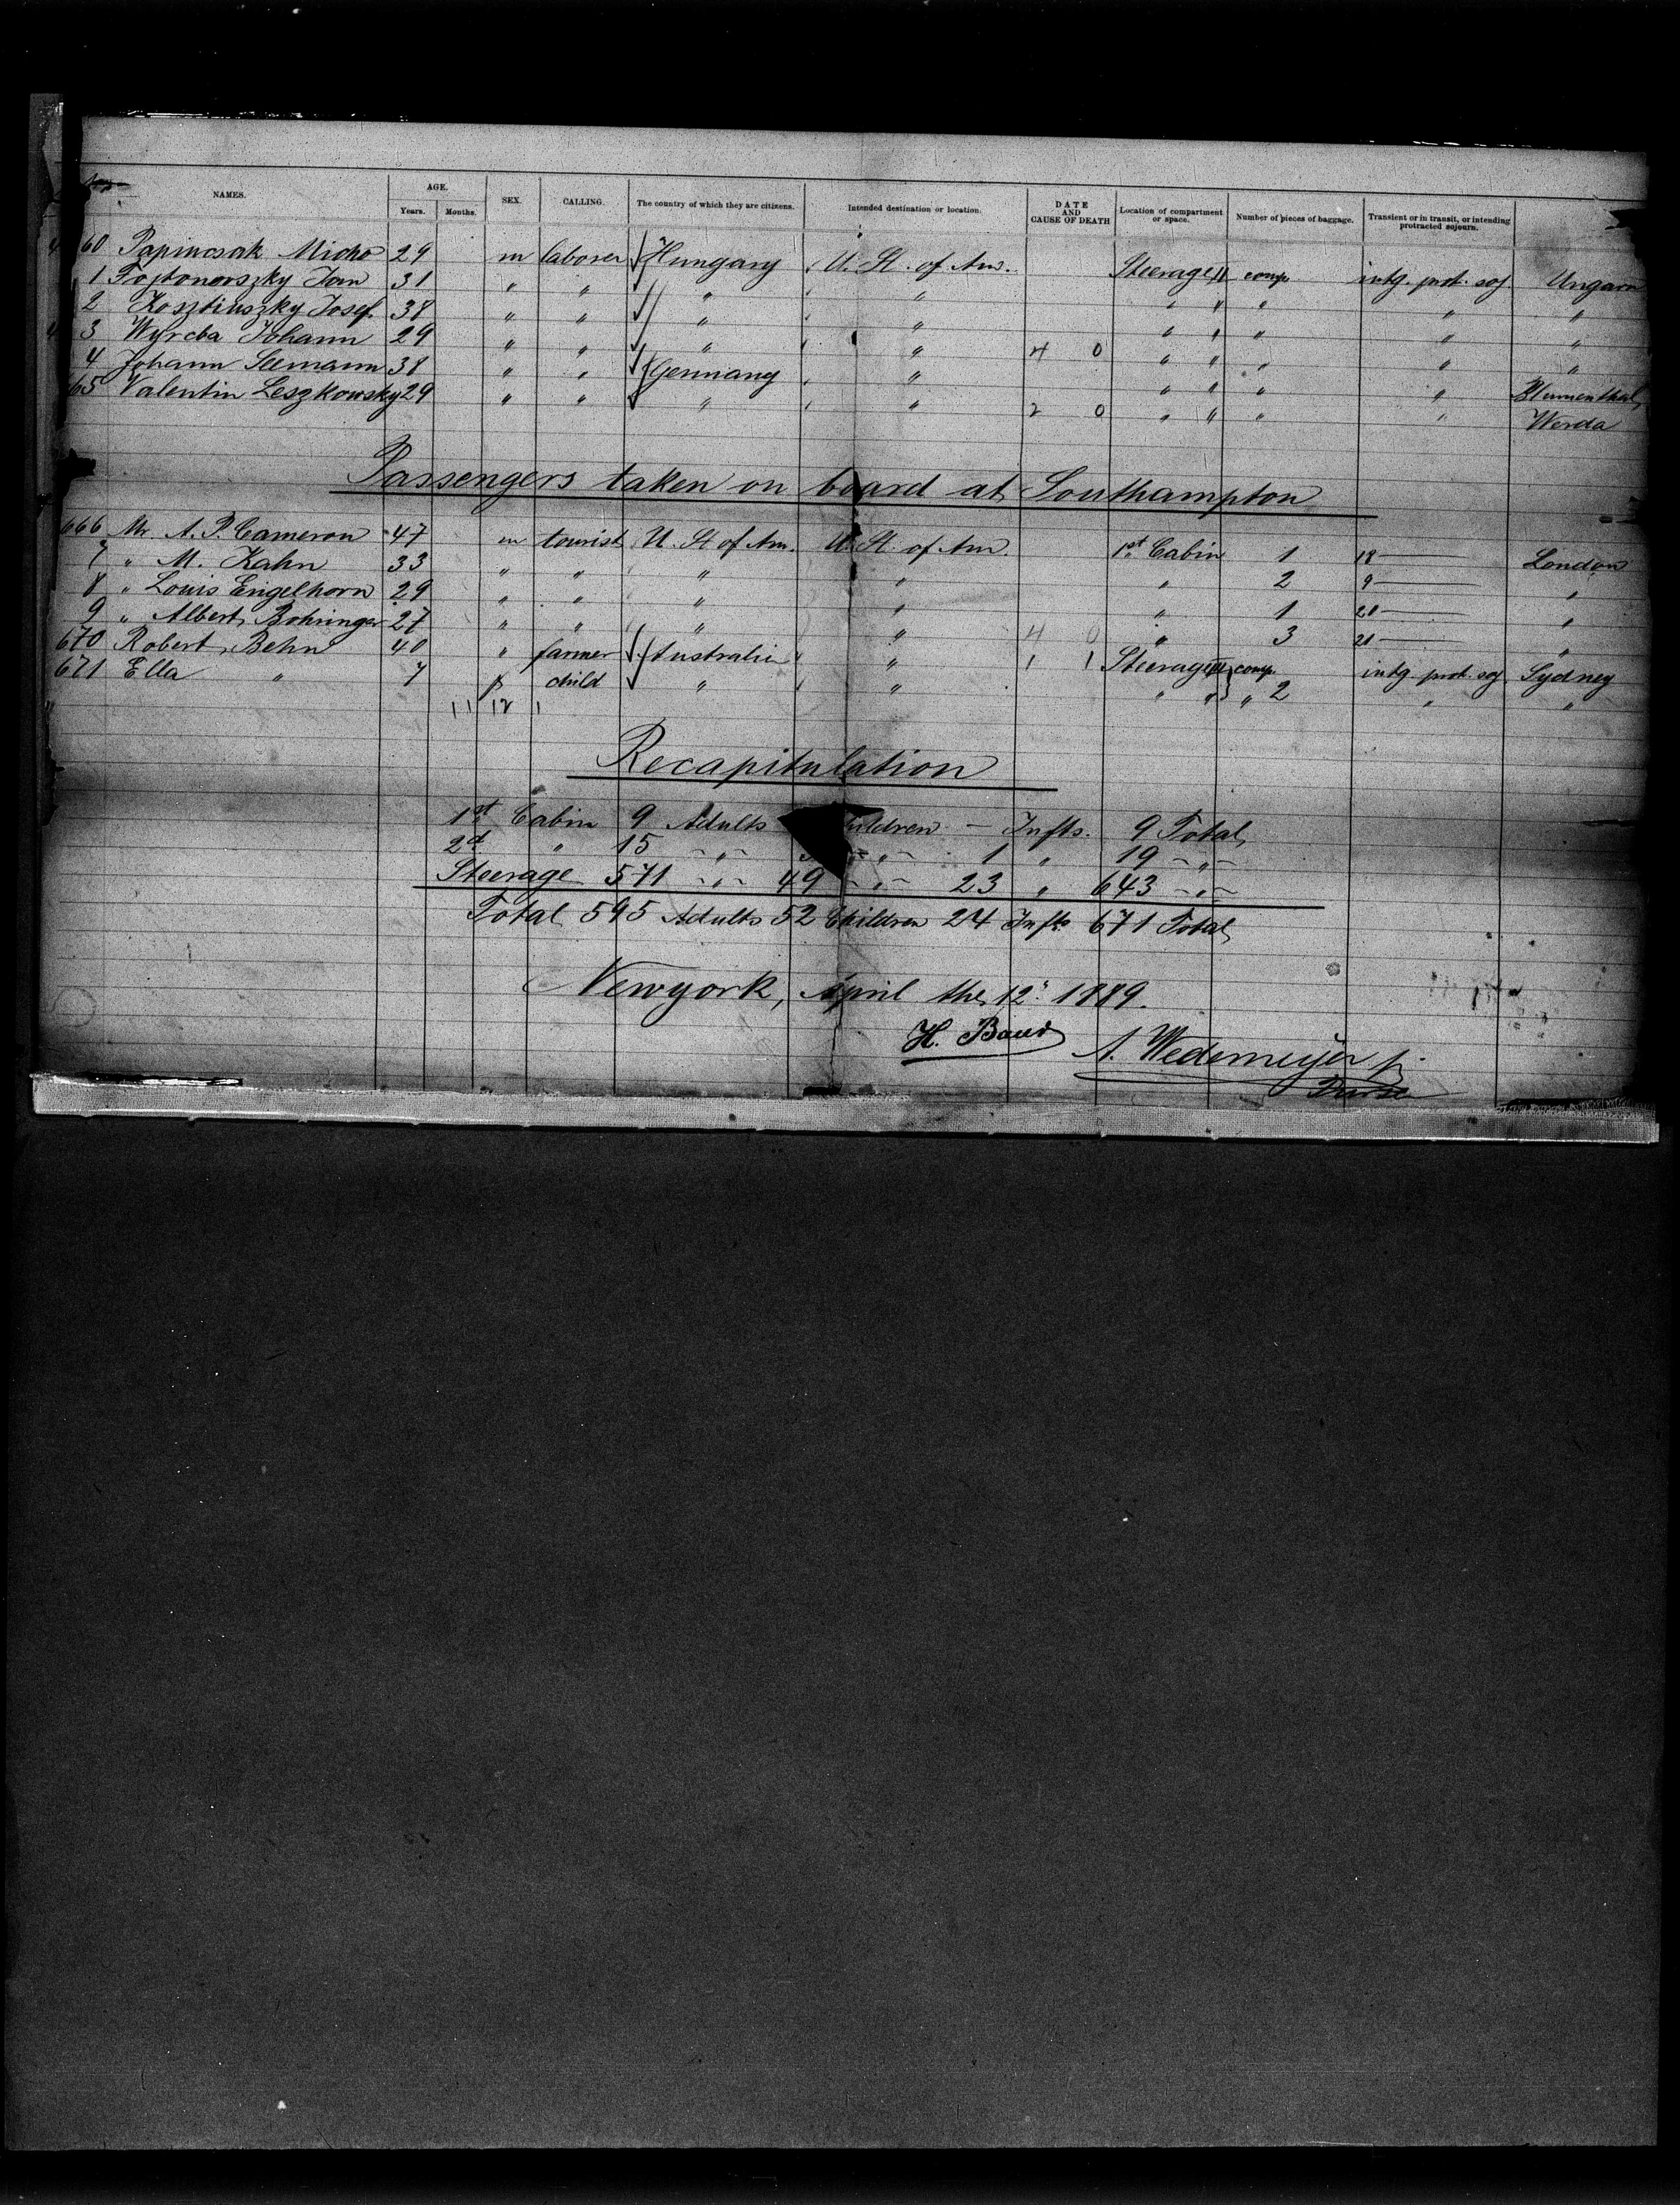 NAMES. AGE. SEX. CALLING. The country of which they are citizens. Intended destination or location. DATE AND CAUSE OF DEATH Location of compartment or space. Number of pieces of baggage. Transient or in transit, or intending protracted sojourn.
Years. Months.
60 Papincsak Micho 29 m laborer Hungary U. St. of Am. Steerage II comp intg. prot. soj Ungarn
1 Jan 31 " " " " " " " " "
2 Kosztiuszky Josef 38 " " " " " " " " "
3 Wyrcba Johann 29 " " " " 4 0 " " " " "
4 Johann Seemann 38 " " Germany " " " " " Blumenthal
65 Valentin Leszkowsky 29 " " " " 2 0 " " " " Werda
Passengers taken on board at Southampton
666 Mr. A. P. Cameron 47 m tourist U. St of Am. U. St. of Am. 1st Cabin 1 18 — London
7 " M. Kahn 33 " " " " " 2 9 — "
8 " Louis Engelhorn 29 " " " " " 1 20 — "
9 " Albert Bohringer 27 " " " " 4 0 " 3 21 — "
670 Robert Behn 40 " farmer Australia " 1 1 Steerage III comp. intg. prot. soj Sydney
671 Ella " 7 f child " " " " " 2 " "
11 12 1
Recapitulation
1st Cabin 9 Adults children — Infts. 9 Total
2d " 15 " " 1 " 19 "
Steerage 571 " 49 " 23 " 643 "
Total 595 Adults 52 Children 24 Infts 671 Total
Newyork, April the 12: 1889.
H. Baur
A. Wedemeyer jr
Purser